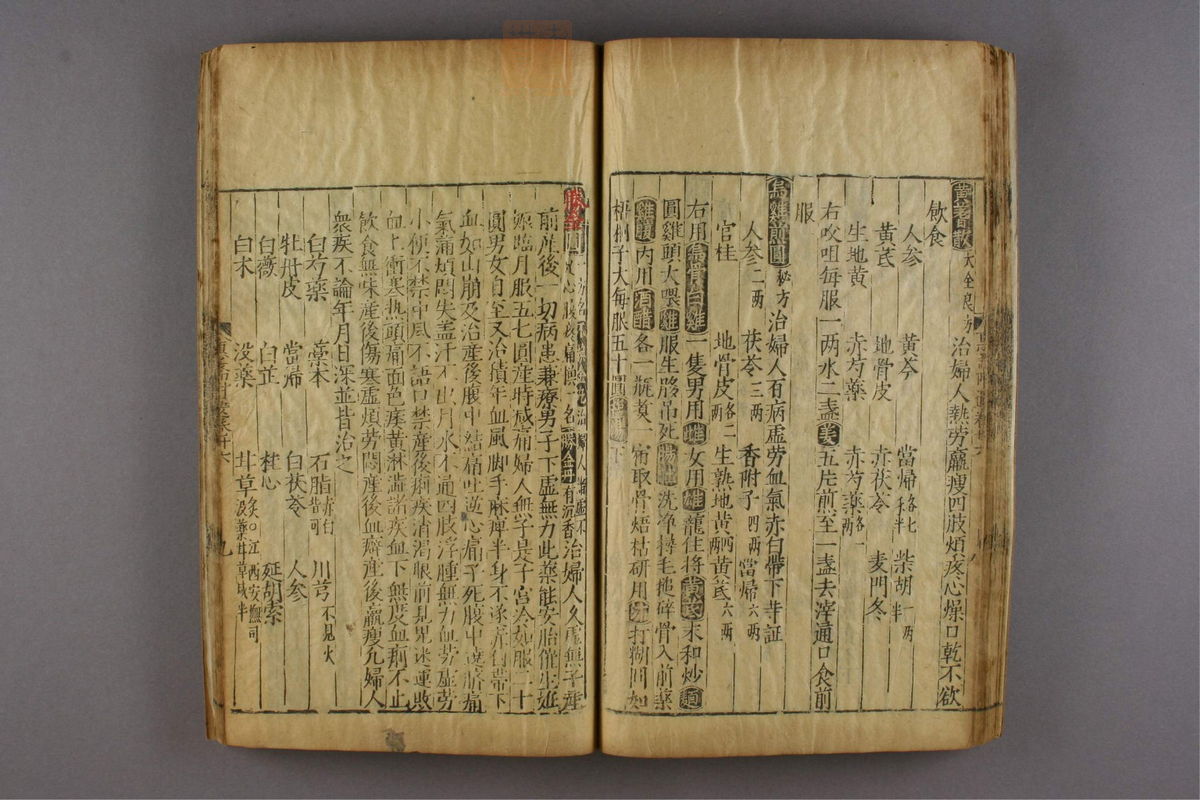 黃芩散大全良方治婦人熱勞羸瘦四肢煩疼心燥口乾不欲
飲食
人參 黃芩 當歸 柴胡一两半
黃芪 地骨皮 赤茯苓 麦門冬
生地黃 赤芍藥 赤芍藥
右㕮咀每服一两水二盞姜五片煎至一盞去滓通口食前
服
烏雞煎圓秘方治婦人百病虛劳血氣赤白帶下等証
人参二两 茯苓三两 香附子四两 當帰六两
官桂 地骨皮各二两 生熟地黃四两 黃芪六两
右用烏骨白雞一隻男用雌女用雄籠住将黃芪末和炒麵
圓雞頭大喂雞服生肠吊死洗净撏毛槌碎骨入前藥
雞腹内用酒醋各一瓶煑一宿取骨焙枯研用汁打糊圓如
梧桐子大每服五十圓下
勝金圓一名勝金丹有沉香治婦人久虛無子產
前産後一切病患兼療男子下虛無力此藥能安胎催生姙
娠臨月服五七圓産時减痛婦人無子是子宮冷如服二十
圓男女自至又治積年血風脚手麻痺半身不遂赤白帶下
血如山崩及治産後腹中結痛吐逆心痛子死腹中遶臍痛
氣滿煩悶失盖汗不出月水不通四肢浮腫無力血劳虛劳
小便不禁中風不語口禁産後痢疾消渴眼前見鬼迷運敗
血上衝寒熱頭痛面色痿黃淋澁諸疾血下無度血痢不止
飲食無味産後傷寒虛煩劳悶産後血癖産後羸瘦凢婦人
衆疾不論年月日深並皆治之
白芍藥 藁本 石脂赤白皆可 川芎不見火
牡丹皮 當帰 白茯苓 人参
白薇 白芷 桂心 延胡索
白术 没藥 甘草